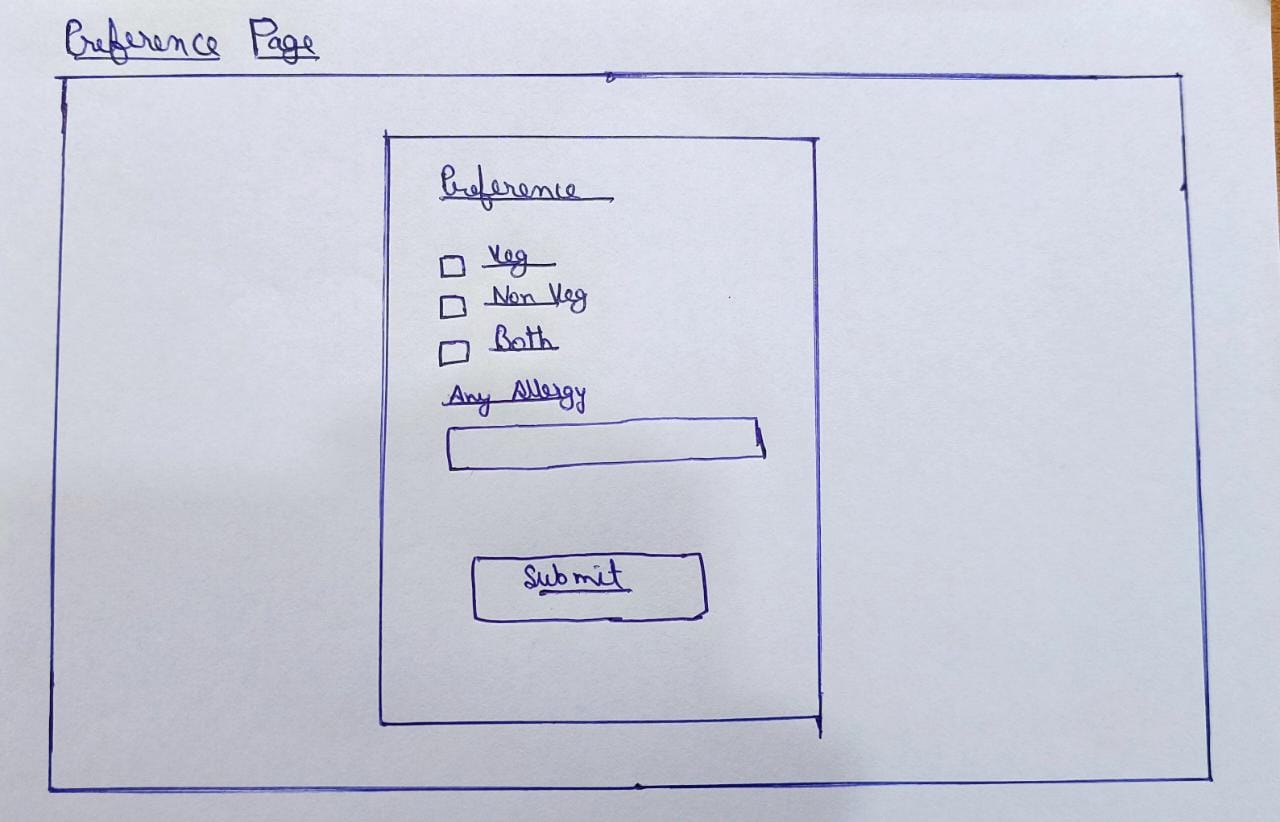 Preference Page
Preference
Veg
Non Veg
Both
Any Allergy
Submit